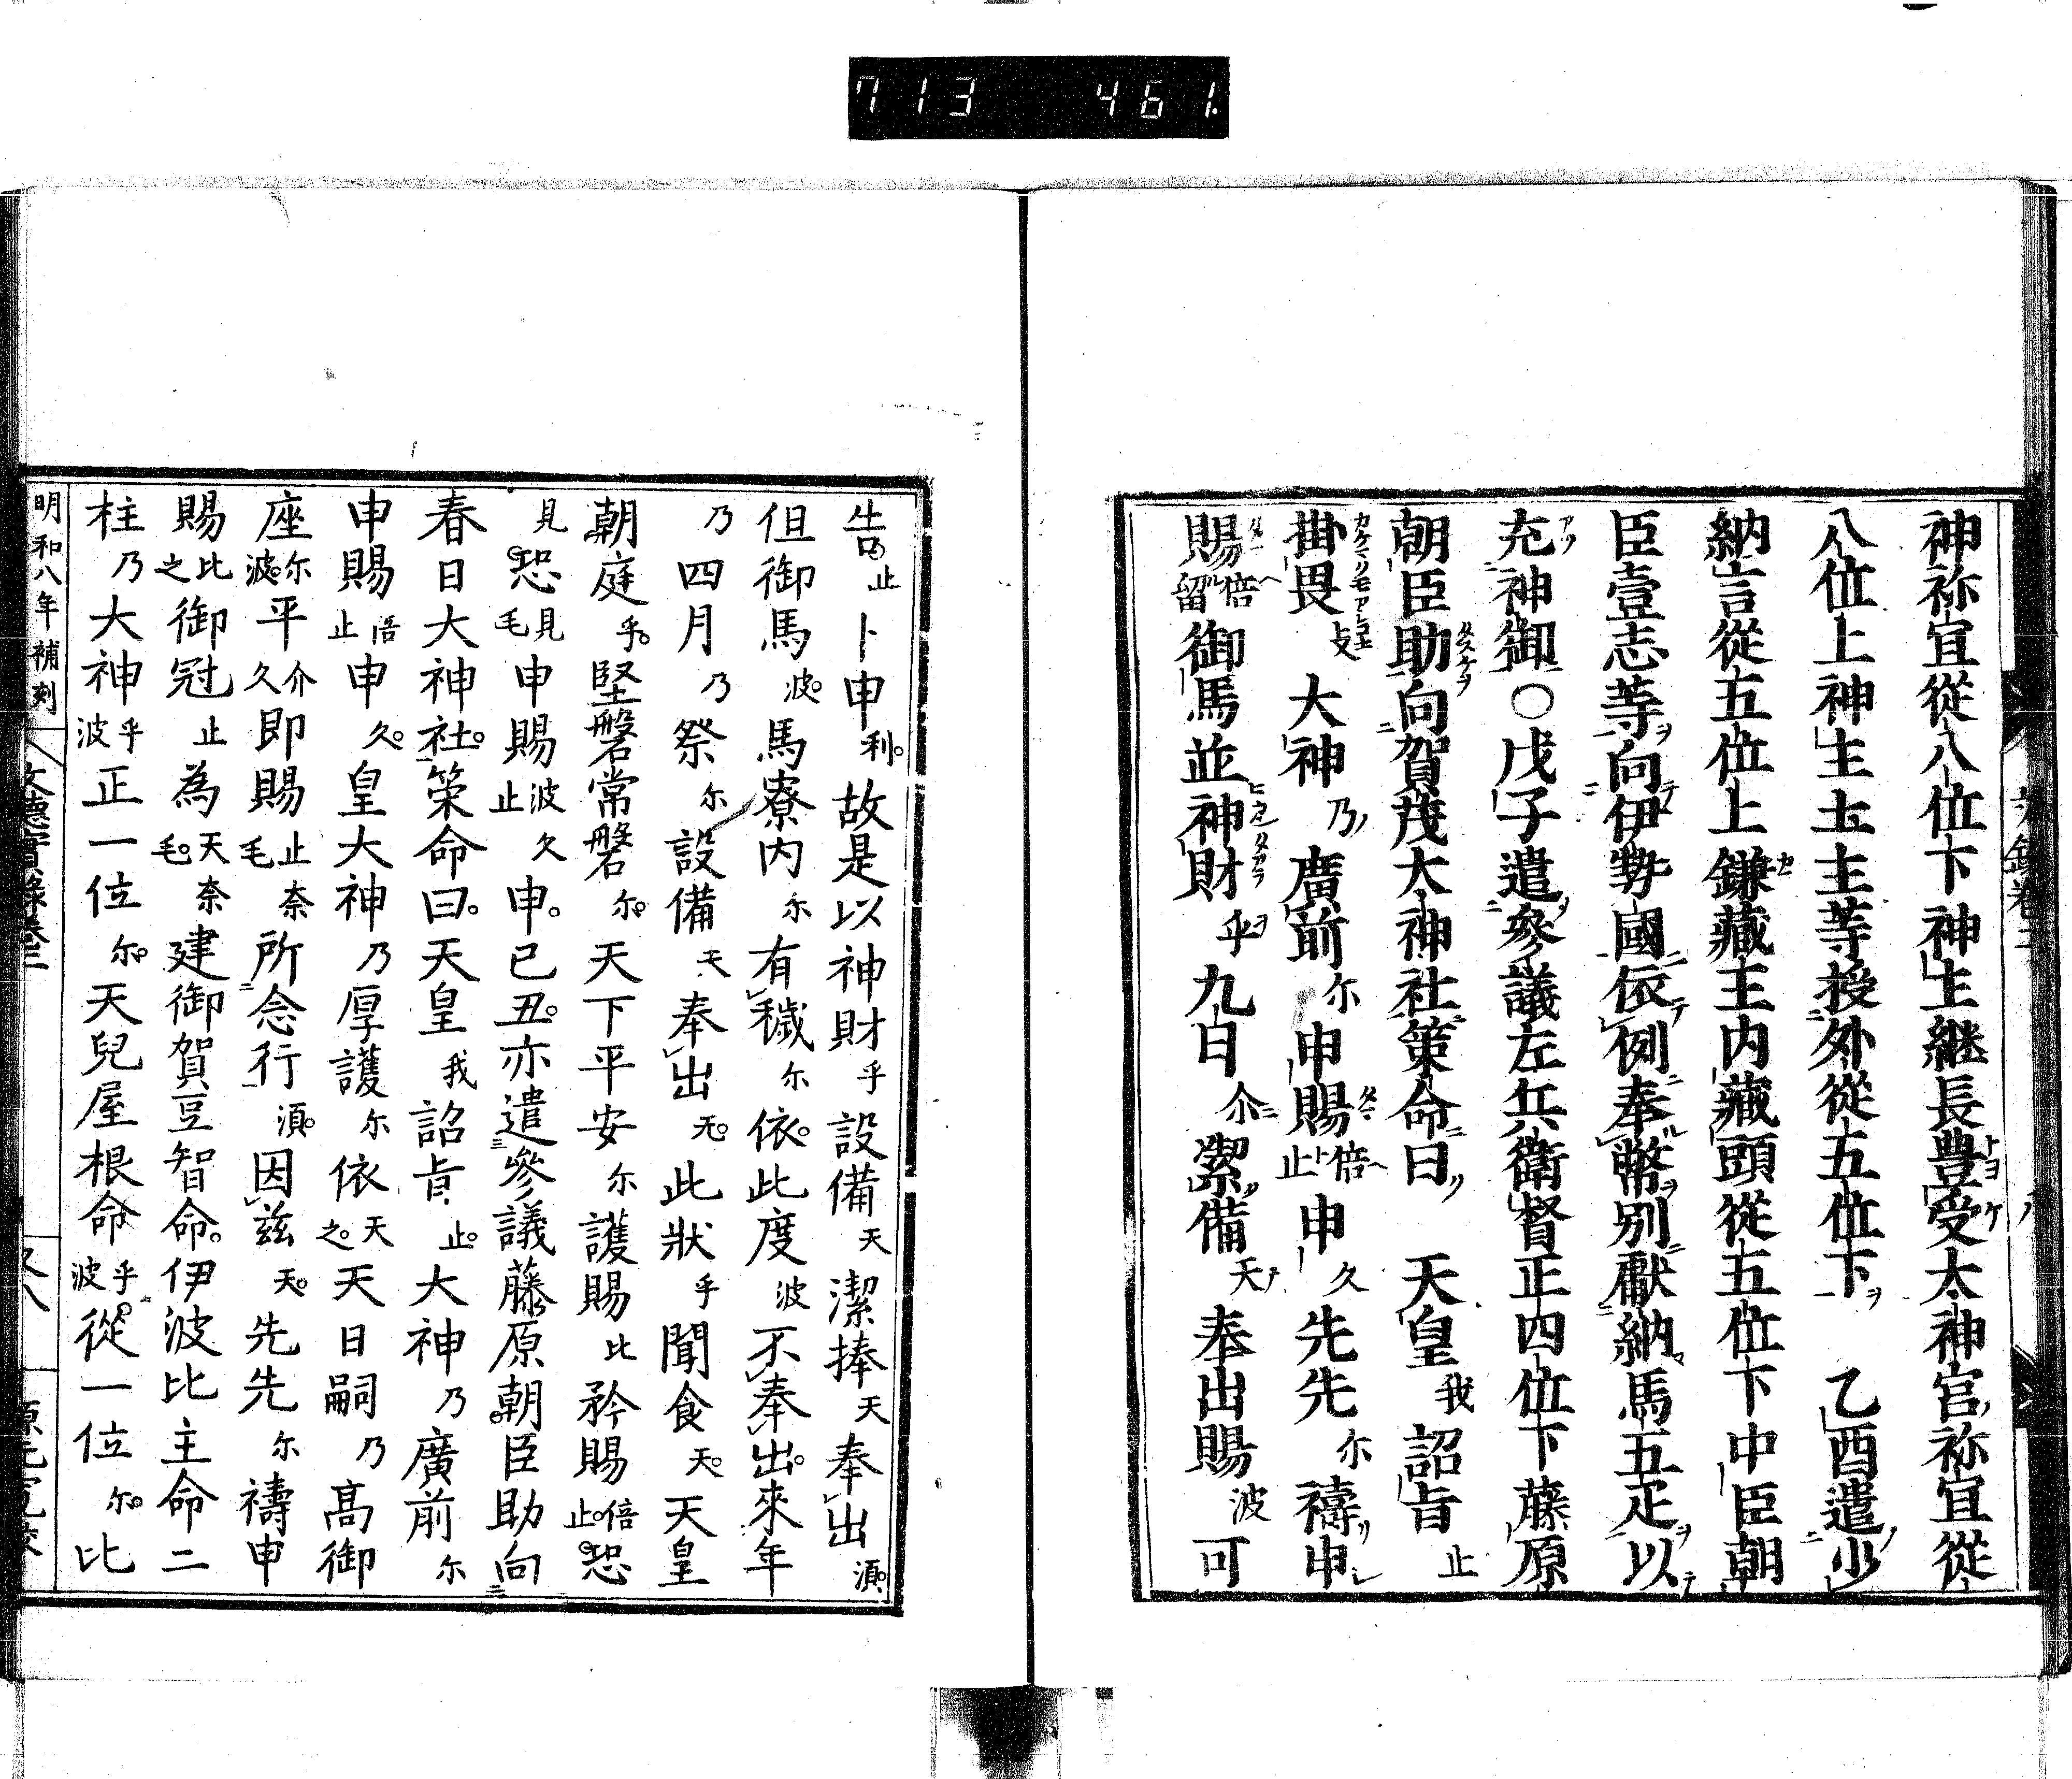 713 461
神祢宜從八位下神主継長豊受太神宮祢宜從
八位上神主圡主等授外從五位下 乙酉遣少
納言從五位上鎌藏王内藏頭從五位下中臣朝
臣壹志等向伊勢國依例奉幣別獻納馬五疋以
充神御○戊子遣參議左兵衛督正四位下藤原
朝臣助向賀茂大神社策命曰 天皇我詔旨止
掛畏支大神乃廣前尓申賜倍止申久先先尓禱申
賜倍留御馬並神財乎九日尓潔備天奉出賜波可
告止卜申利故是以神財乎設備天潔捧天奉出湏
伹御馬波馬寮内尓有穢尓依此度波不奉出來年
乃四月乃祭尓設備天奉出无此狀乎聞食天天皇
朝庭乎堅磐常磐尓天下平安尓護賜比矜賜倍止恐
見恐見毛申賜波久止申己丑亦遣參議藤原朝臣助向
春日大神社策命曰天皇我詔旨止大神乃廣前尓
申賜倍止申久皇大神乃厚護尓依天之天日嗣乃高御
座尓波平介久即賜止奈毛所念行湏因兹天先先尓禱申
賜比之御冠止為天奈毛建御賀豆智命伊波比主命二
柱乃大神乎波正一位尓天兒屋根命乎波從一位尓比
明和八年補刻
文德實録卷二
又八